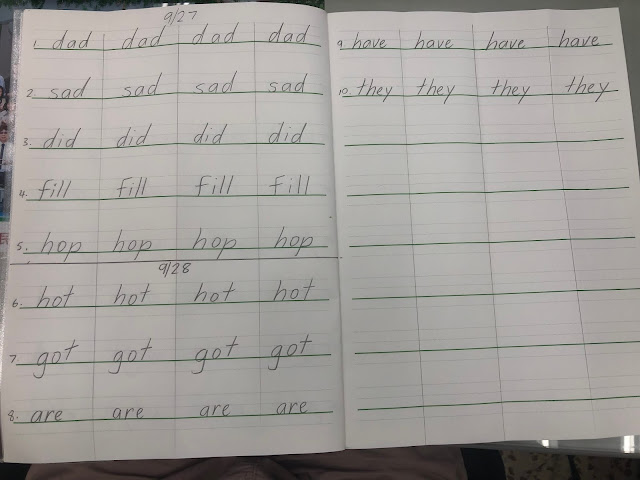 9/27
1. dad dad dad dad
2. sad sad sad sad
3. did did did did
4. fill fill fill fill
5. hop hop hop hop
9/28
6. hot hot hot hot
7. got got got got
8. are are are are
9. have have have have
10. they they they they